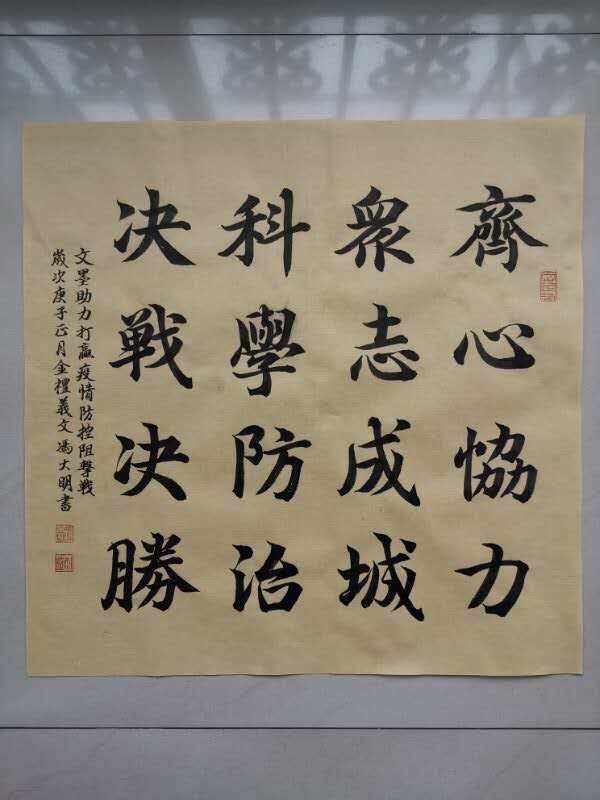 齊心恊力
衆志成城
科學防治
决戰决勝
文墨助力打贏疫情防控阻擊戰
歲次庚子正月金禮義文馮大明書